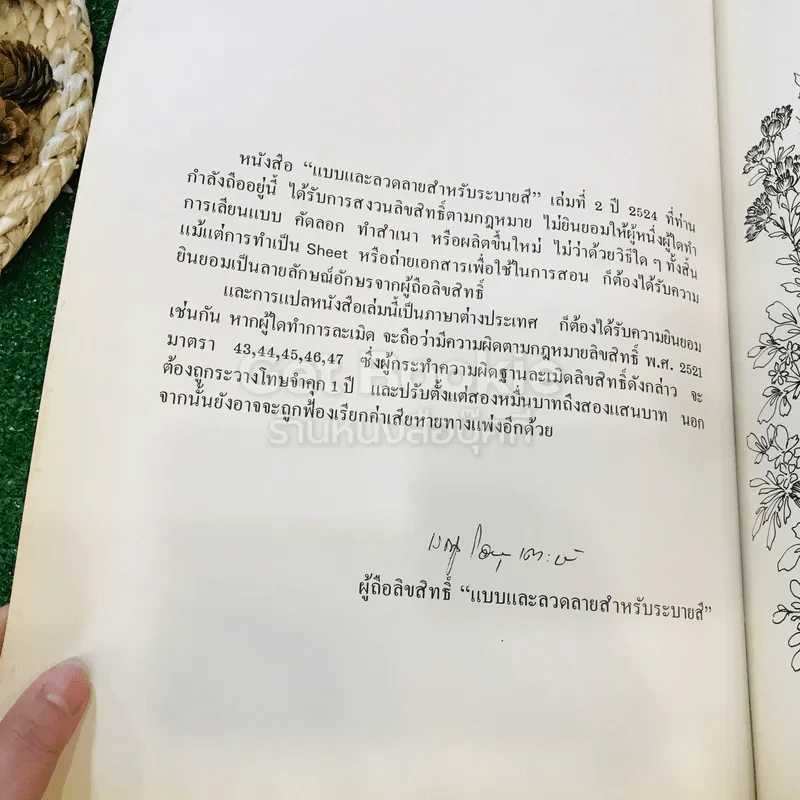 หนังสือ “แบบและลวดลายสำหรับระบายสี” เล่มที่ 2 ปี 2524 ที่ท่าน
กำลังถืออยู่นี้ ได้รับการสงวนลิขสิทธิ์ตามกฎหมาย ไม่ยินยอมให้ผู้หนึ่งผู้ใดทำ
การเลียนแบบ คัดลอก ทำสำเนา หรือผลิตขึ้นใหม่ ไม่ว่าด้วยวิธีใด ๆ ทั้งสิ้น
แม้แต่การทำเป็น Sheet หรือถ่ายเอกสารเพื่อใช้ในการสอน ก็ต้องได้รับความ
ยินยอมเป็นลายลักษณ์อักษรจากผู้ถือลิขสิทธิ์
และการแปลหนังสือเล่มนี้เป็นภาษาต่างประเทศ ก็ต้องได้รับความยินยอม
เช่นกัน หากผู้ใดทำการละเมิด จะถือว่ามีความผิดตามกฎหมายลิขสิทธิ์ พ.ศ. 2521
มาตรา 43,44,45,46,47 ซึ่งผู้กระทำความผิดฐานละเมิดลิขสิทธิ์ดังกล่าว จะ
ต้องถูกระวางโทษจำคุก 1 ปี และปรับตั้งแต่สองหมื่นบาทถึงสองแสนบาท นอก
จากนั้นยังอาจจะถูกฟ้องเรียกค่าเสียหายทางแพ่งอีกด้วย
Get Bookie
ร้านหนังสือบุ๊คกี้
ผู้ถือลิขสิทธิ์ “แบบและลวดลายสำหรับระบายสี”